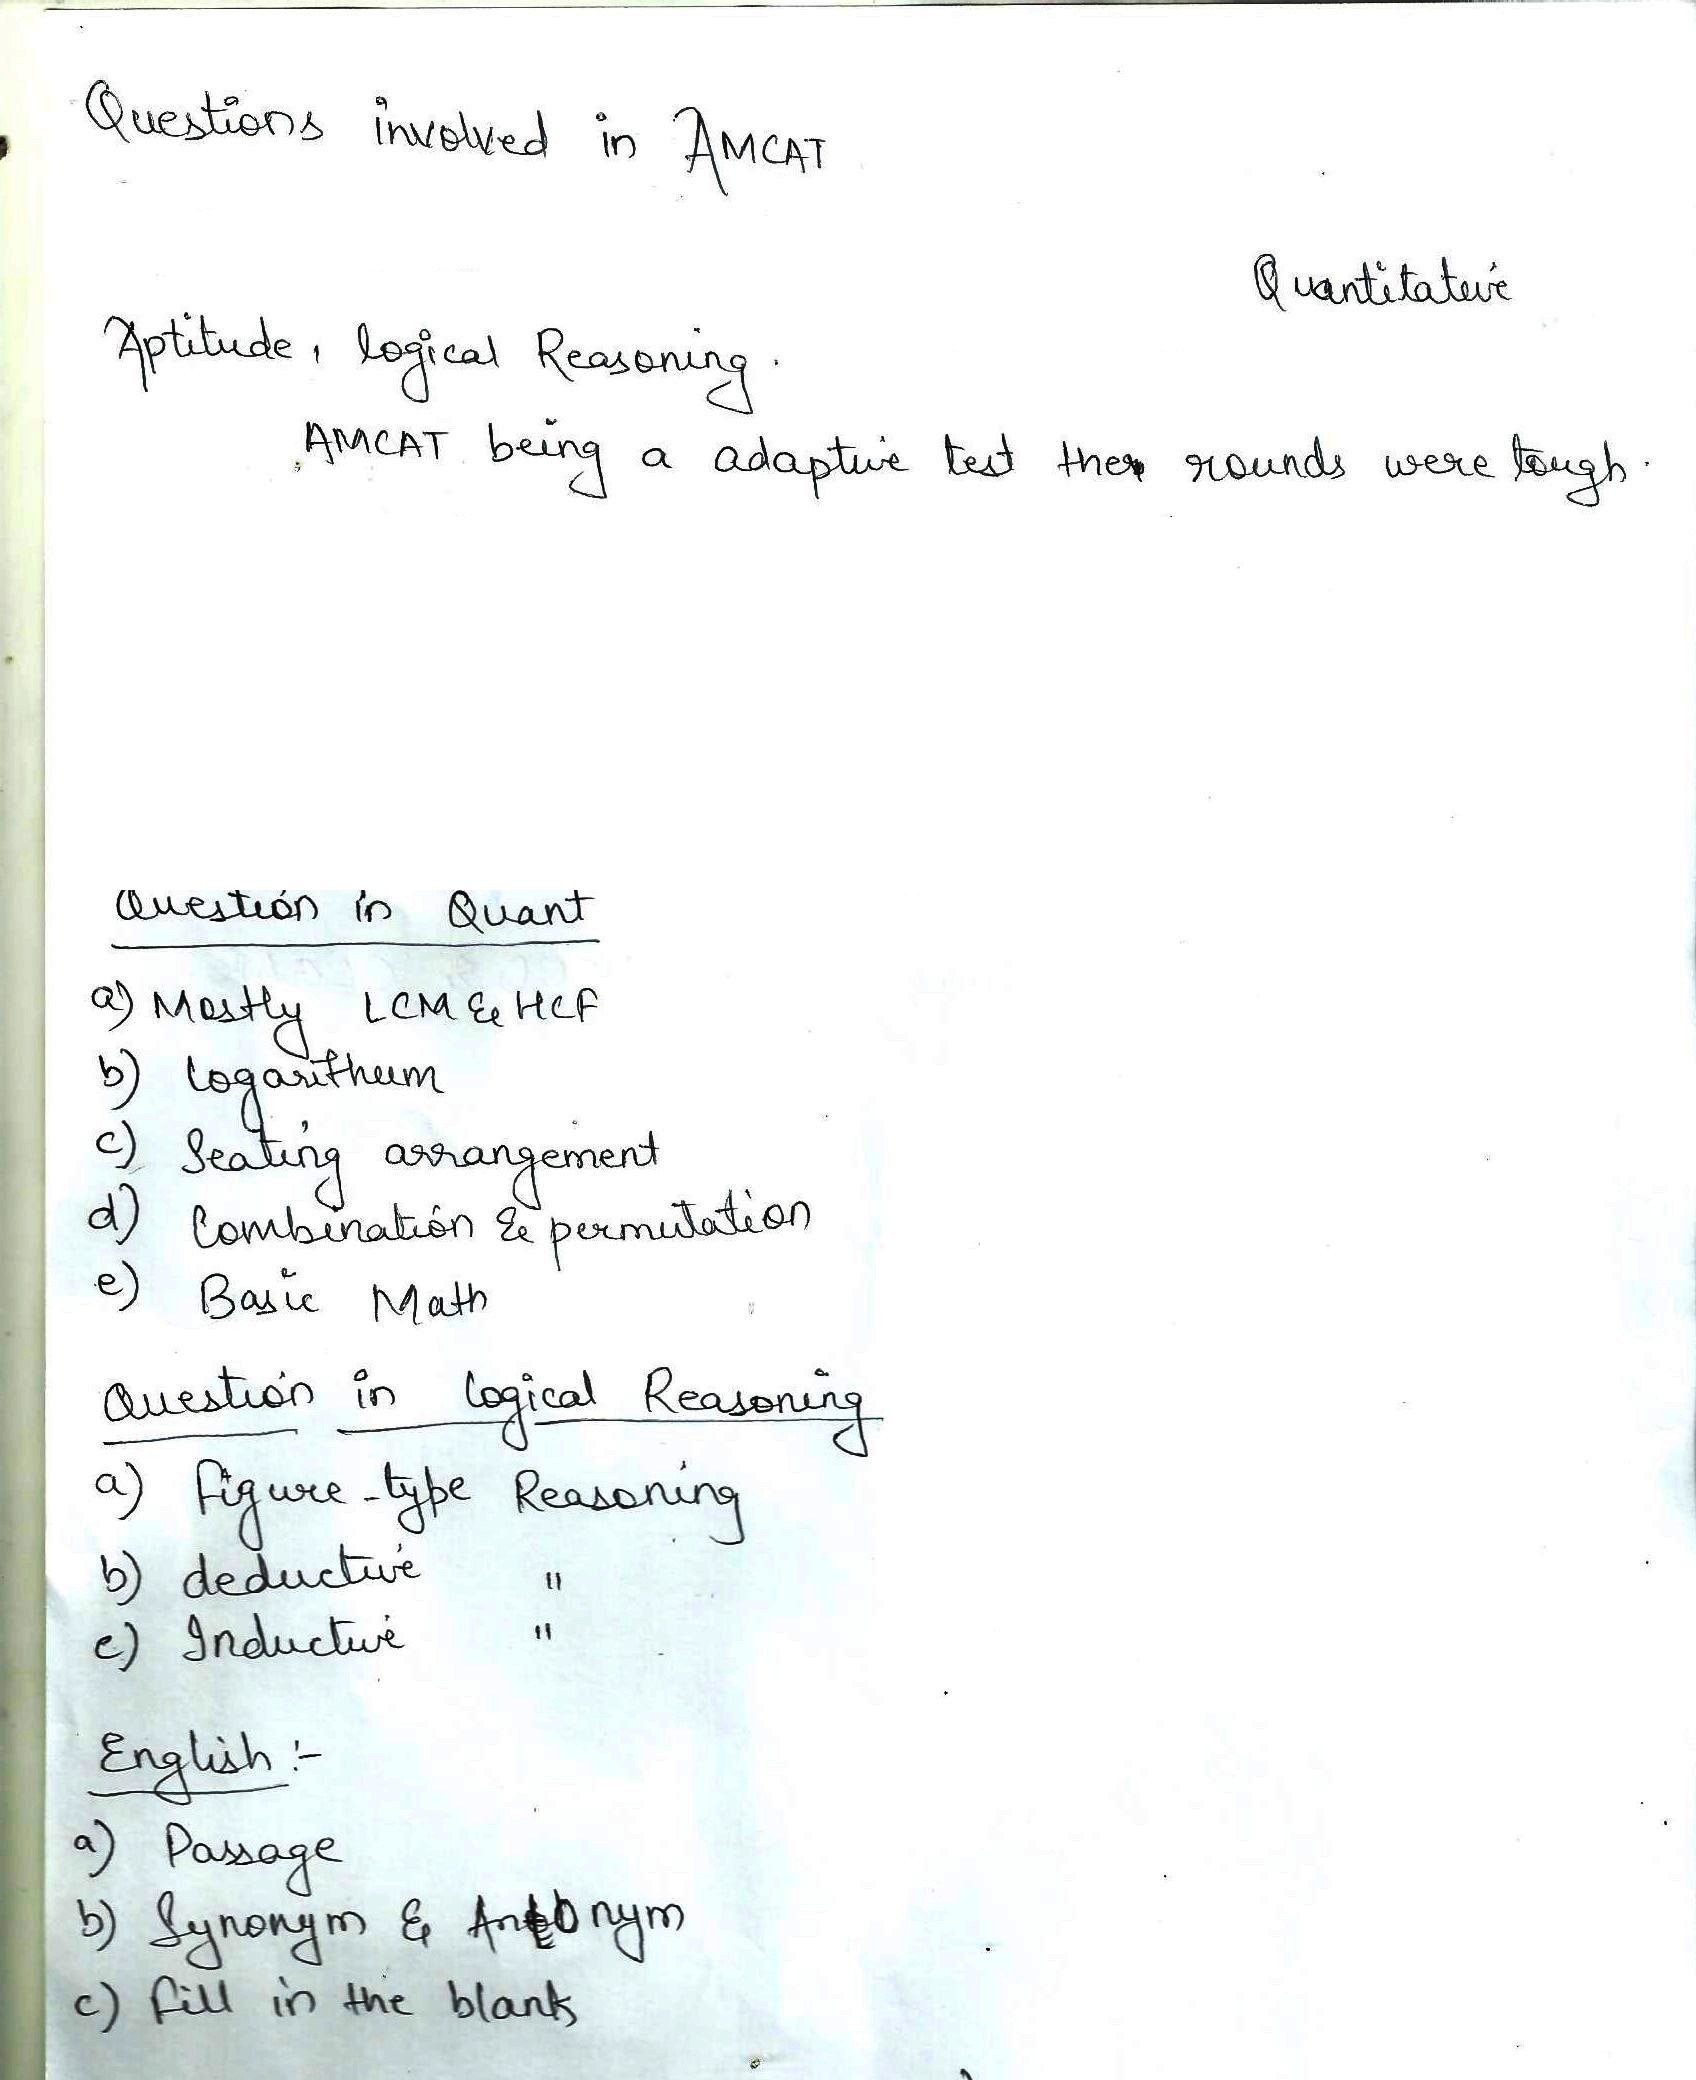 Questions involved in AMCAT
Quantitative
Aptitude, logical Reasoning.
AMCAT being a adaptive test the rounds were tough.
Question in Quant
a) Mostly LCM & HCF
b) Logarithum
c) Seating arrangement
d) Combination & permutation
e) Basic Math
Question in Logical Reasoning
a) Figure-type Reasoning
b) deductive "
c) Inductive "
English :-
a) Passage
b) Synonym & Antonym
c) Fill in the blanks